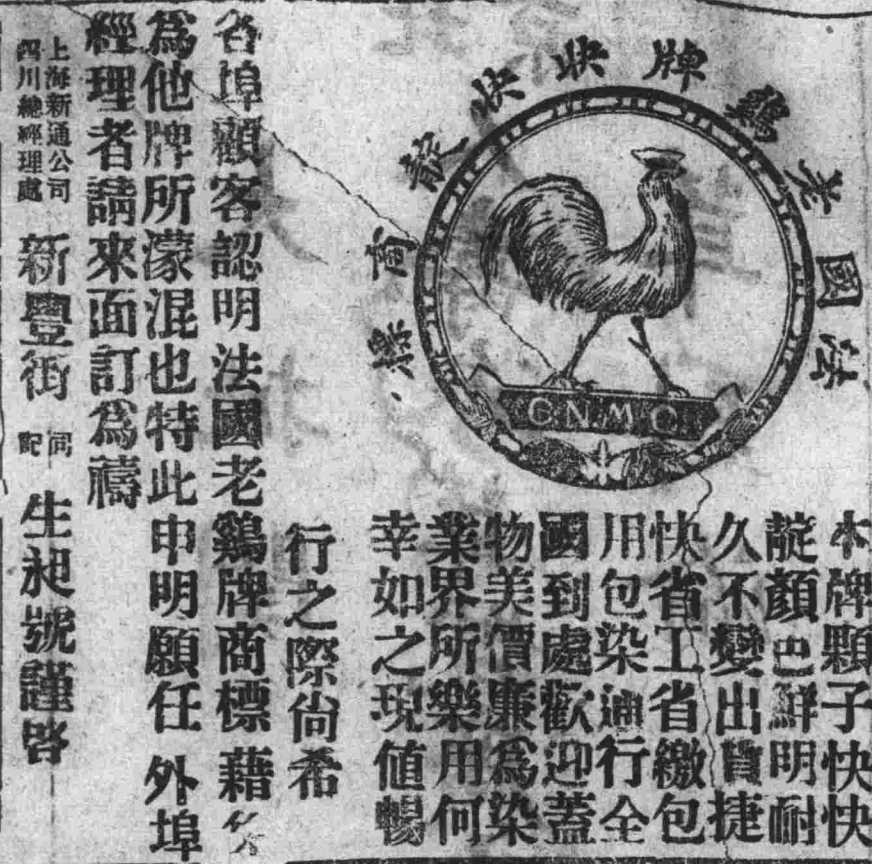 法國老鷄牌快快靛商標
G.N.M.C.
本牌顆子快快
靛顏色鮮明耐
久不變出貨捷
快省工省繳包
用包染通行全
國到處歡迎蓋
物美價廉為染
業界所樂用何
幸如之現值暢
行之際尙希
各埠顧客認明法國老鷄牌商標藉外
為他牌所濛混也特此申明願任外埠
經理者請來面訂為禱
上海新通公司
四川總經理處
新豐街
同記
生昶號謹啓